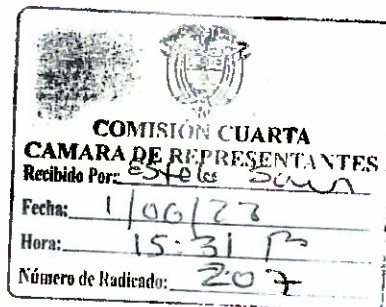 COMISIÓN CUARTA
CAMARA DE REPRESENTANTES
Recibido Por: Estela
Fecha: 1/06/23
Hora: 15:31 P
Número de Radicado: 207